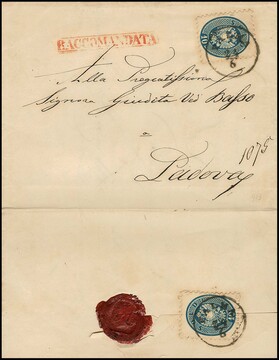 RACCOMANDATA
Alla Pregiatissima
Signora Giuditta Vedª Basso
a
1075
Padova